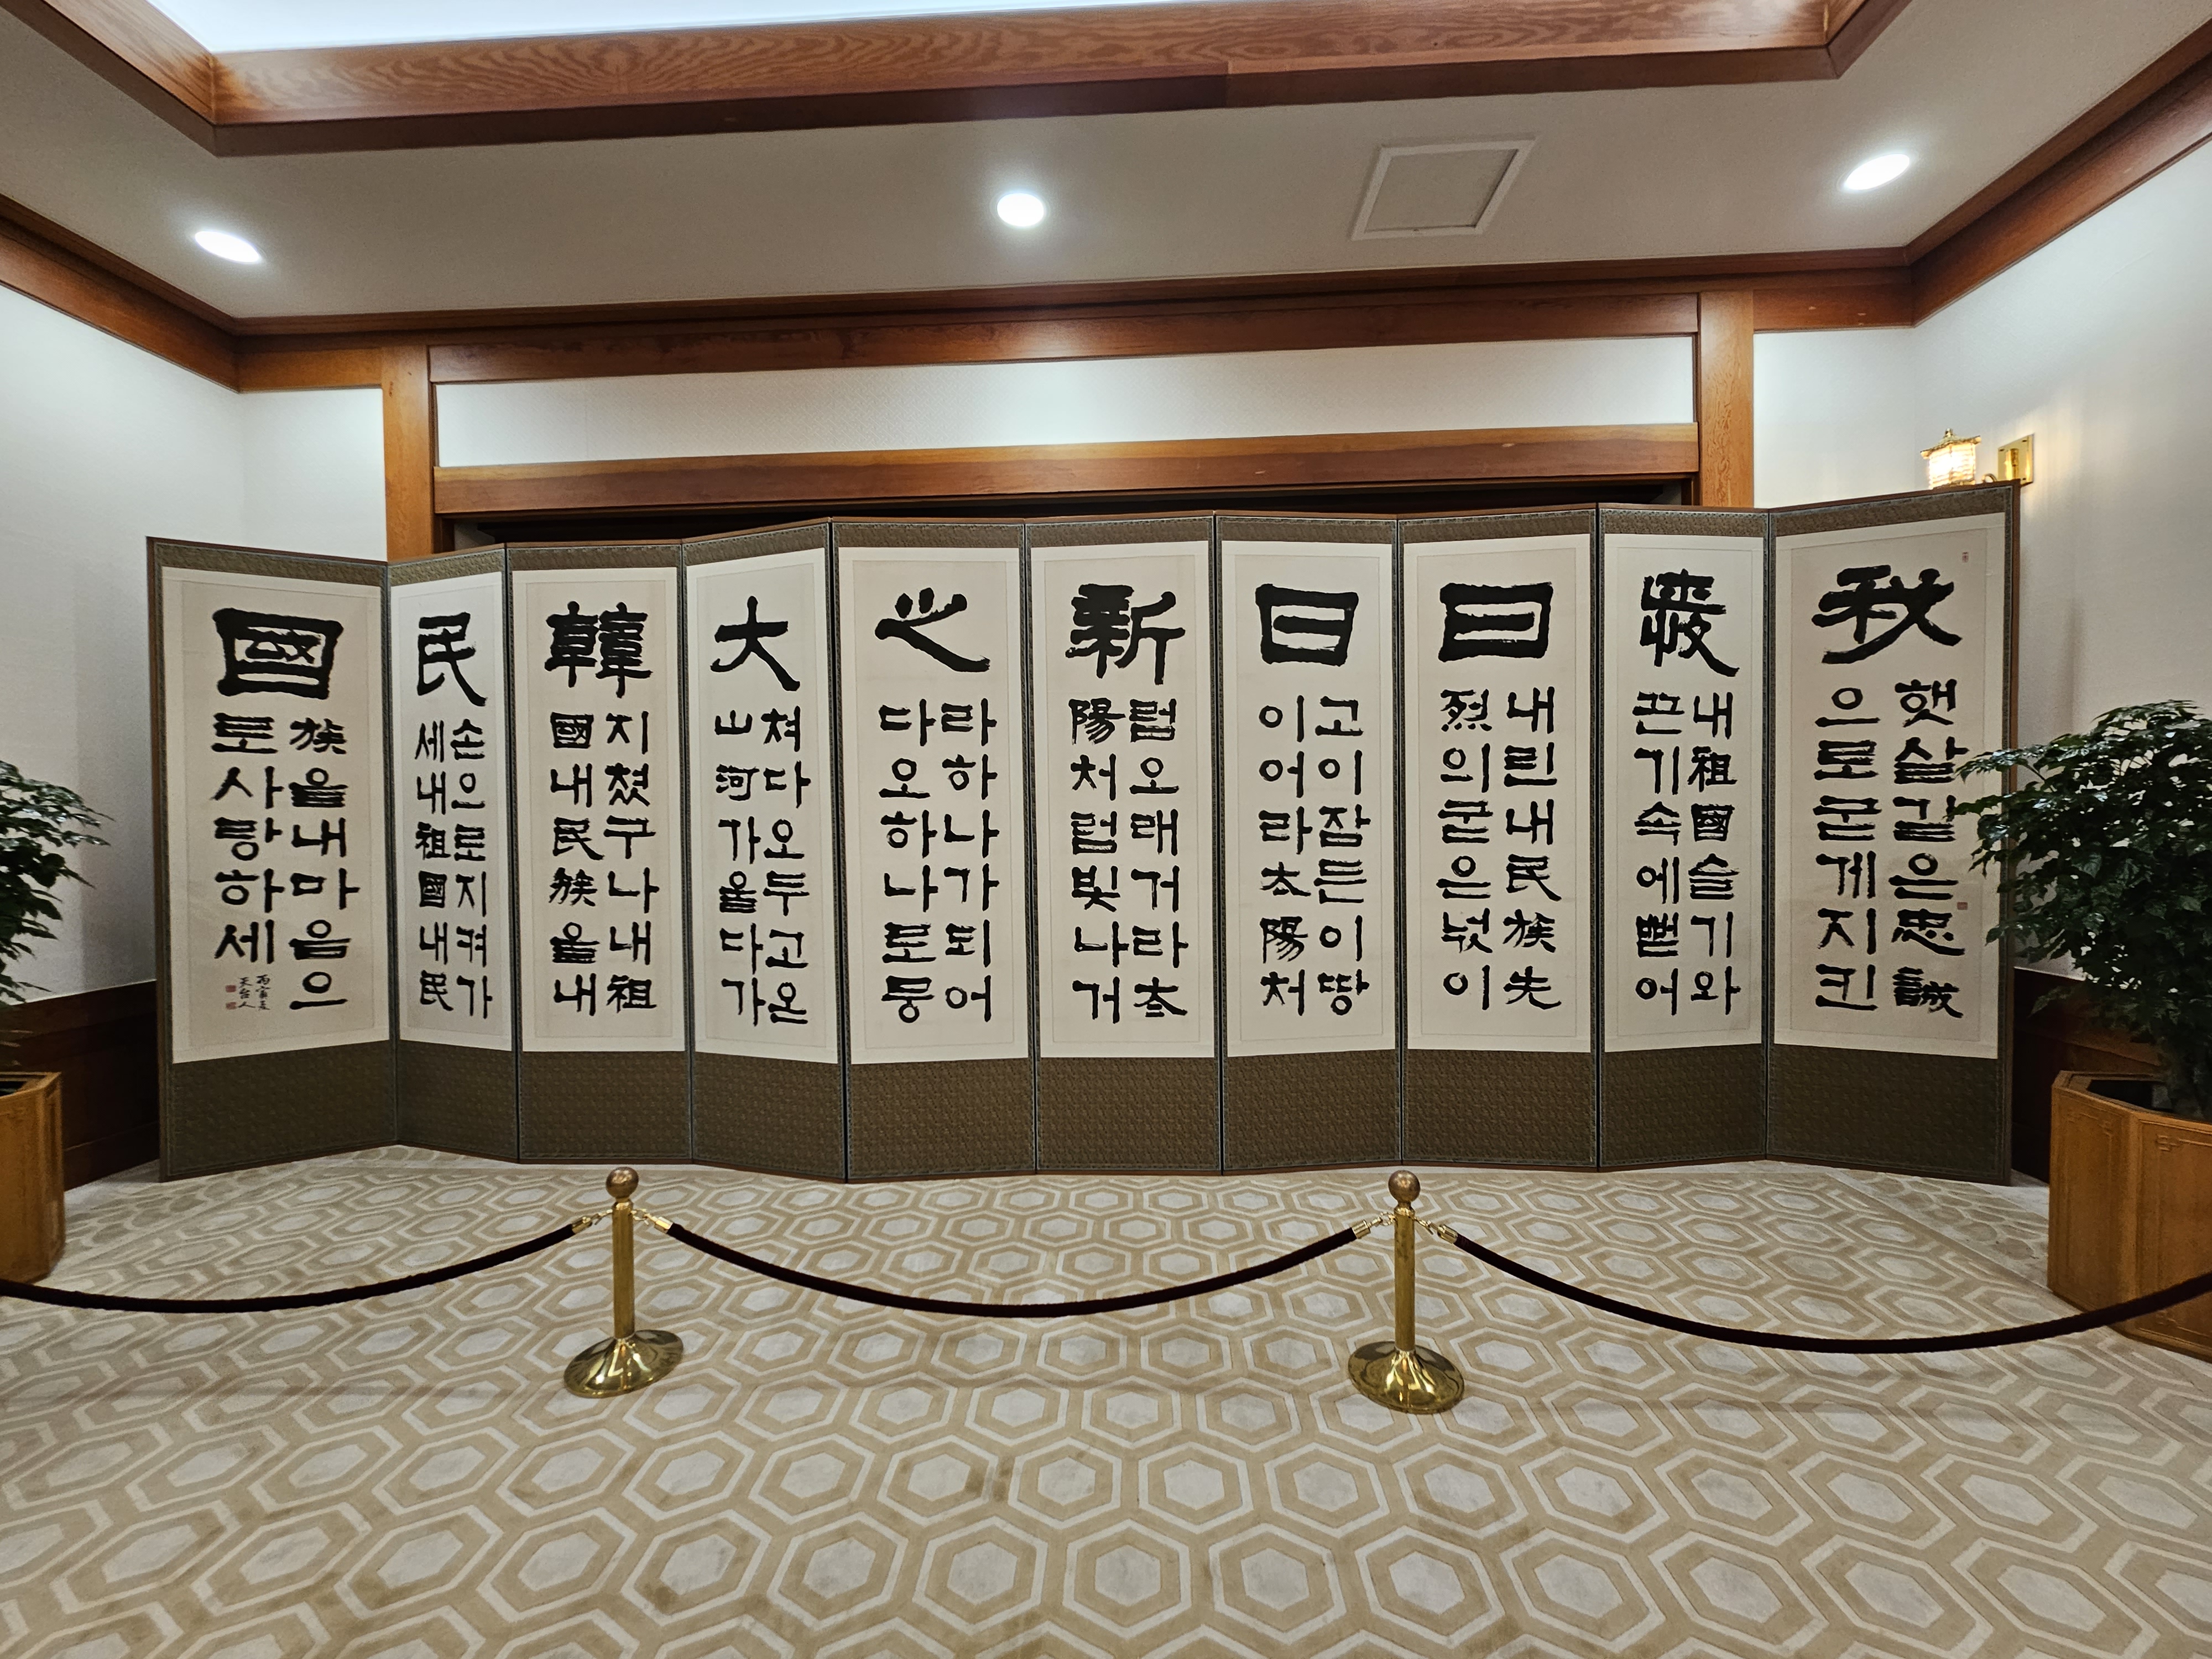 秋
햇살같은忠誠
으로굳게지킨
내祖國슬기와
끈기속에뻗어
日
내린내民族先
烈의굳은넋이
日
고이잠든이땅
이어라太陽처
新
럼오래거라太
陽처럼빛나거
之
라하나가되어
다오하나로뭉
大
쳐다오두고온
山河가울다가
韓
지쳤구나내祖
國내民族을내
民
손으로지켜가
세내祖國내民
國
族을내마음으
로사랑하세
天台人